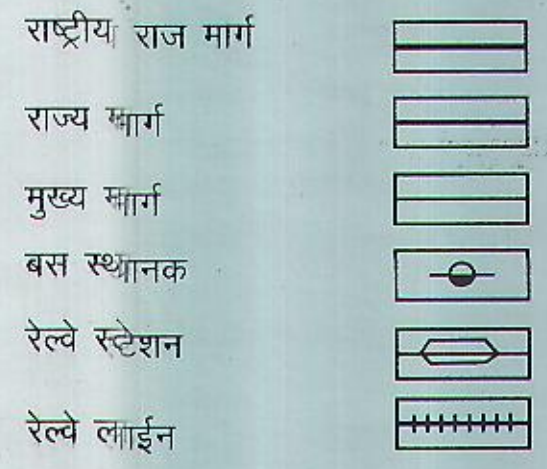 राष्ट्रीय राज मार्ग
राज्य मार्ग
मुख्य मार्ग
बस स्थानक
रेल्वे स्टेशन
रेल्वे लाईन